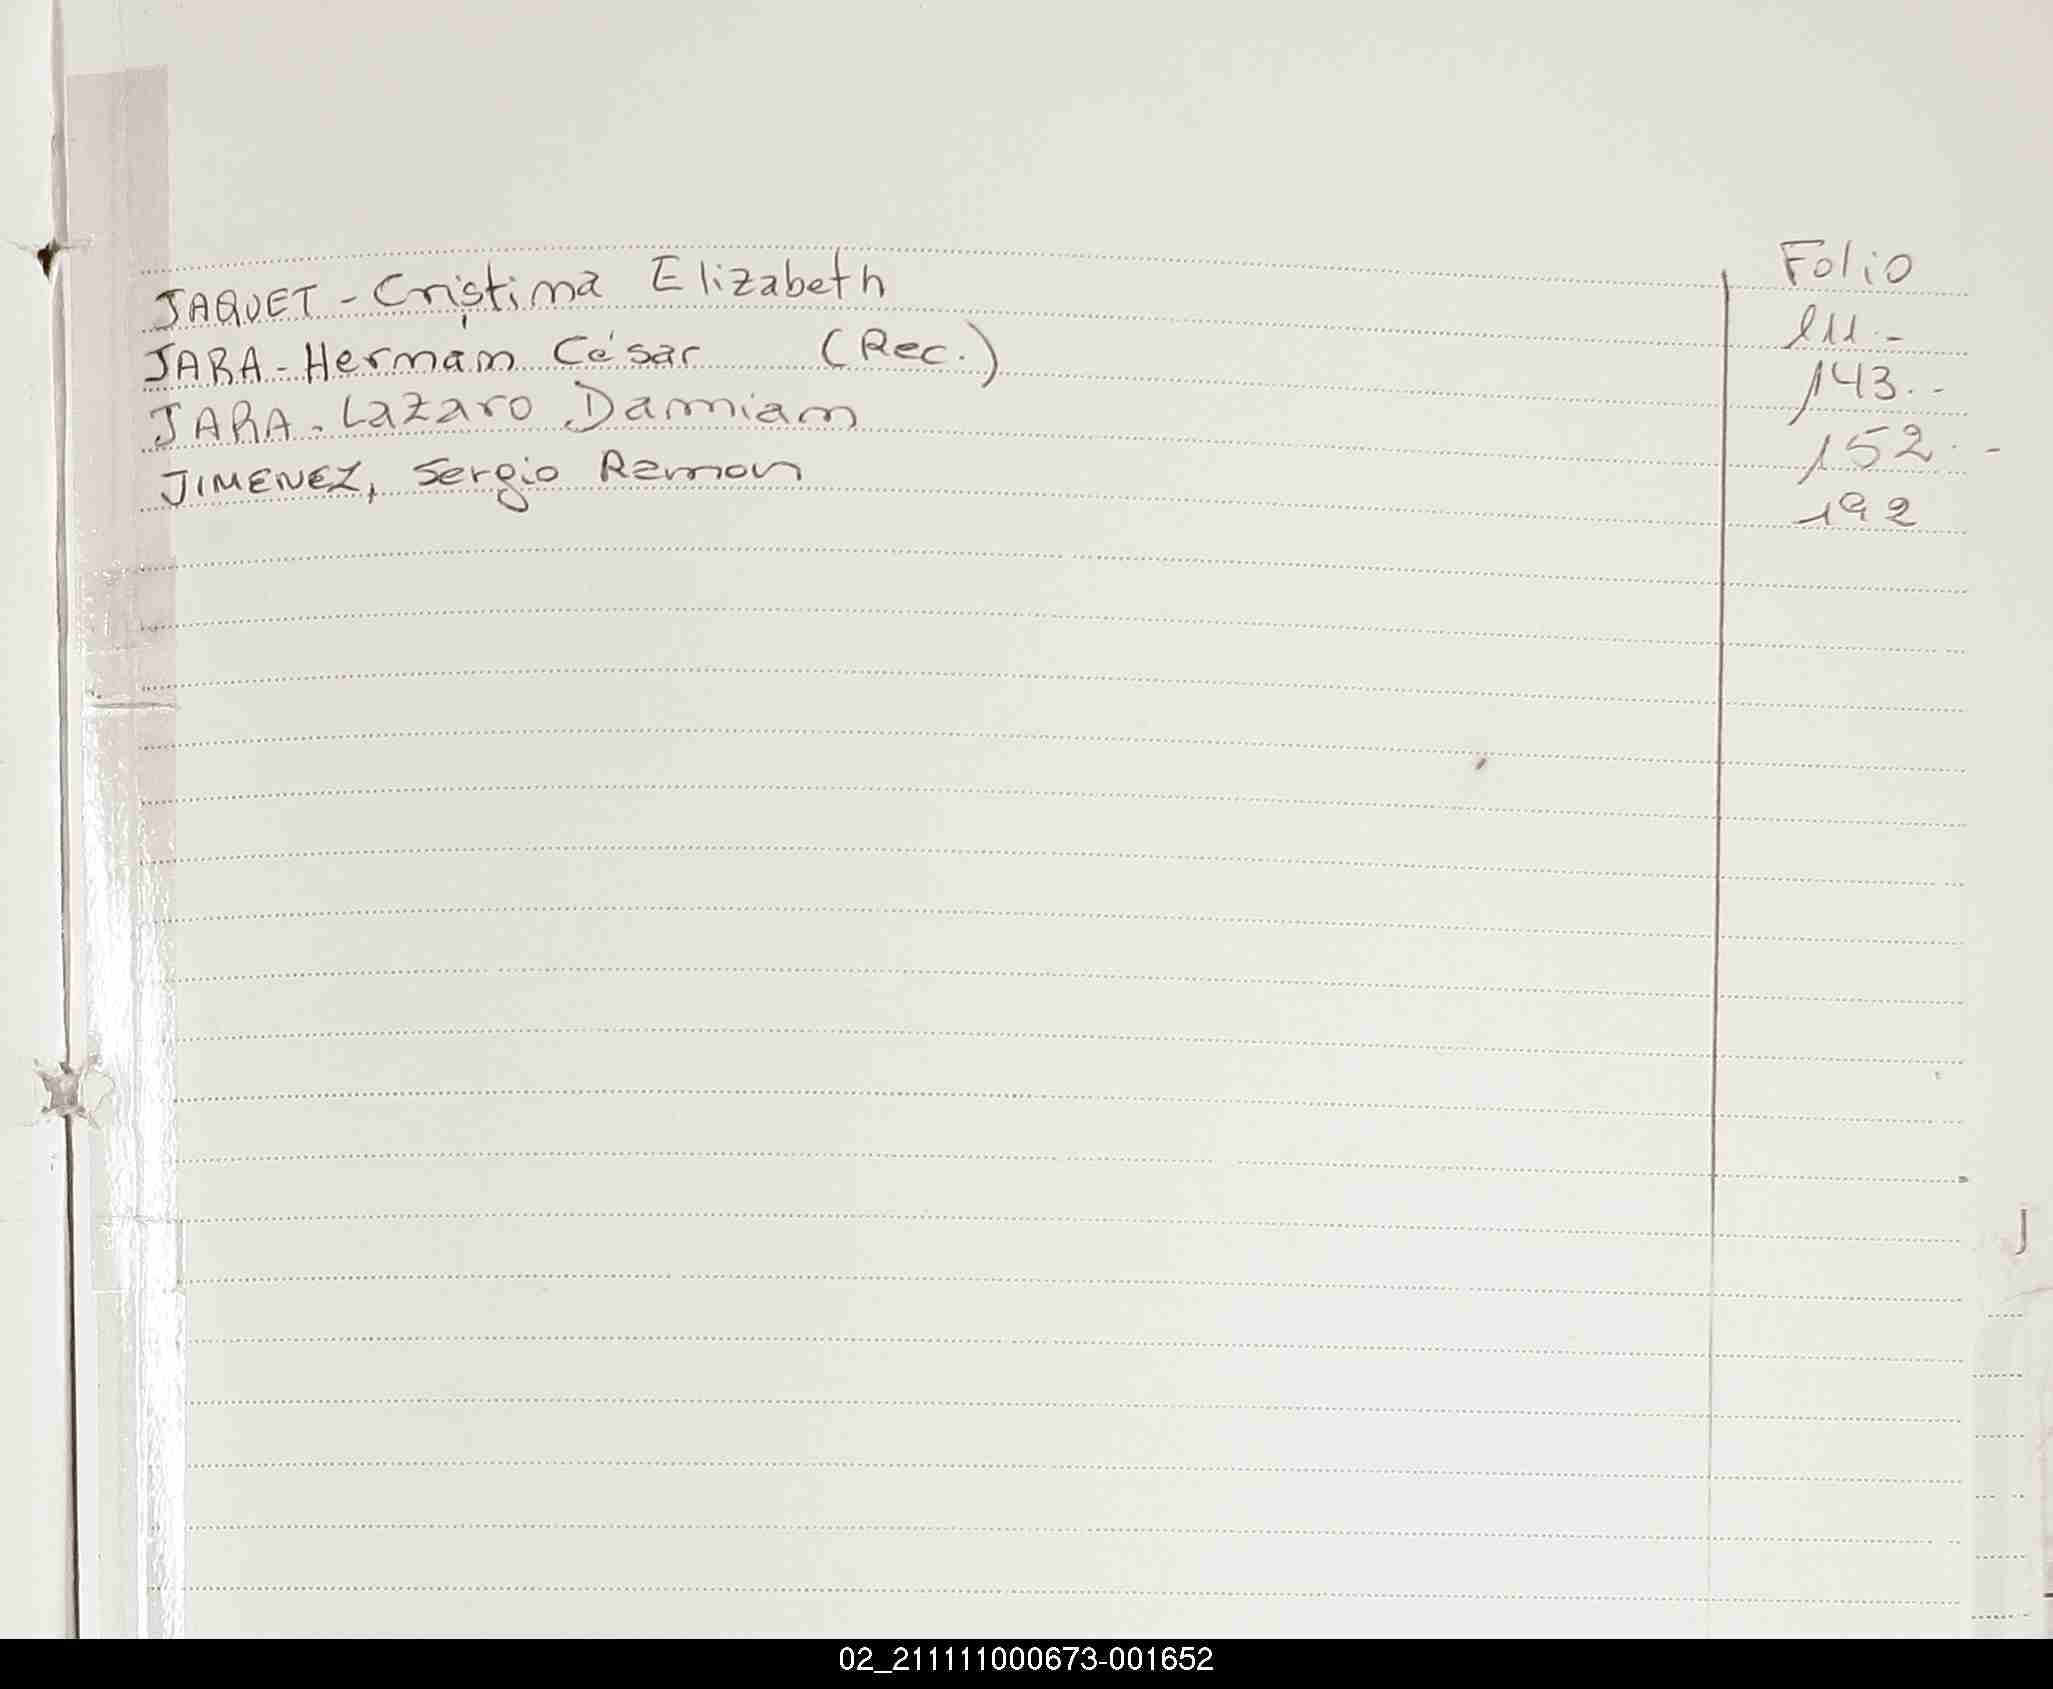 Folio
JAQUET - Cristina Elizabeth 111.-
JARA - Hernán César (Rec.) 143.-
JARA - Lazaro Damian 152.-
JIMENEZ, Sergio Ramon 192
J
02_211111000673-001652